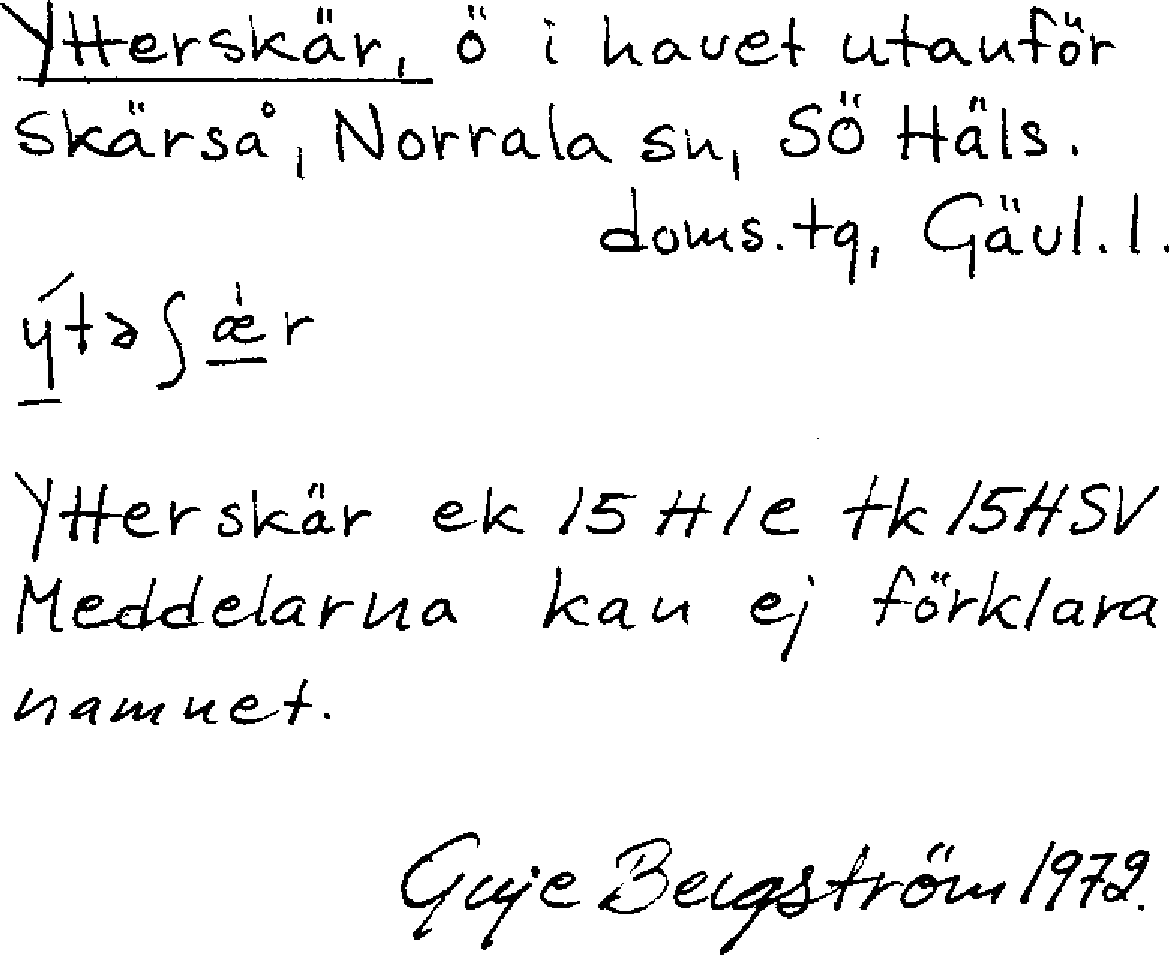 Ytterskär, ö i havet utanför
Skärså, Norrala sn, Sö Häls.
doms.tg, Gävl.l.
ýtəʃæ̀r
Ytterskär ek 15 H 1e tk 15H SV
Meddelarna kan ej förklara
namnet.
Bergström 1972.